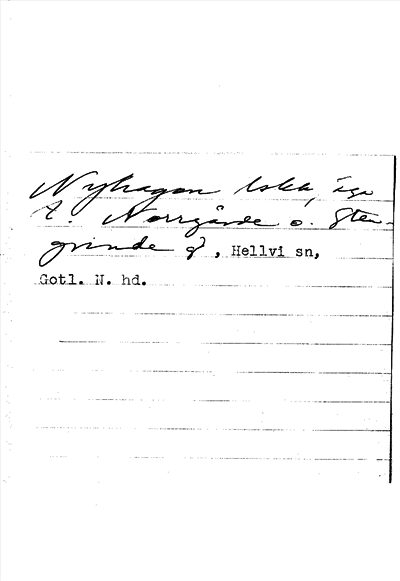 Nyhagen lska, äga
t. Norrgårde o. Sten-
grinde g, Hellvi sn,
Gotl. N. hd.